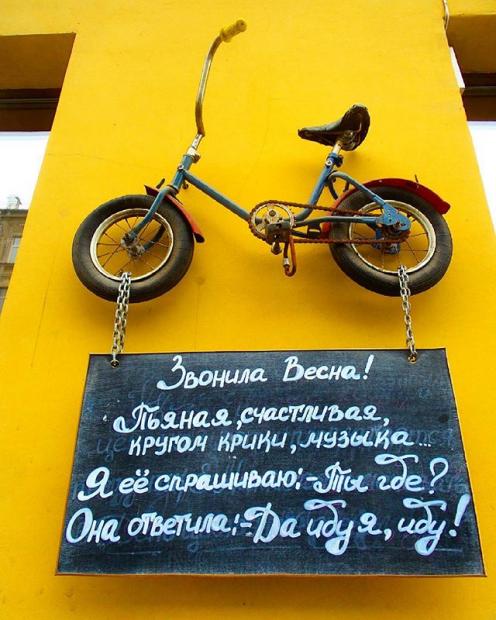 Звонила Весна!
Пьяная, счастливая,
кругом крики, музыка...
Я её спрашиваю:-Ты где?
Она ответила:-Да иду я, иду!